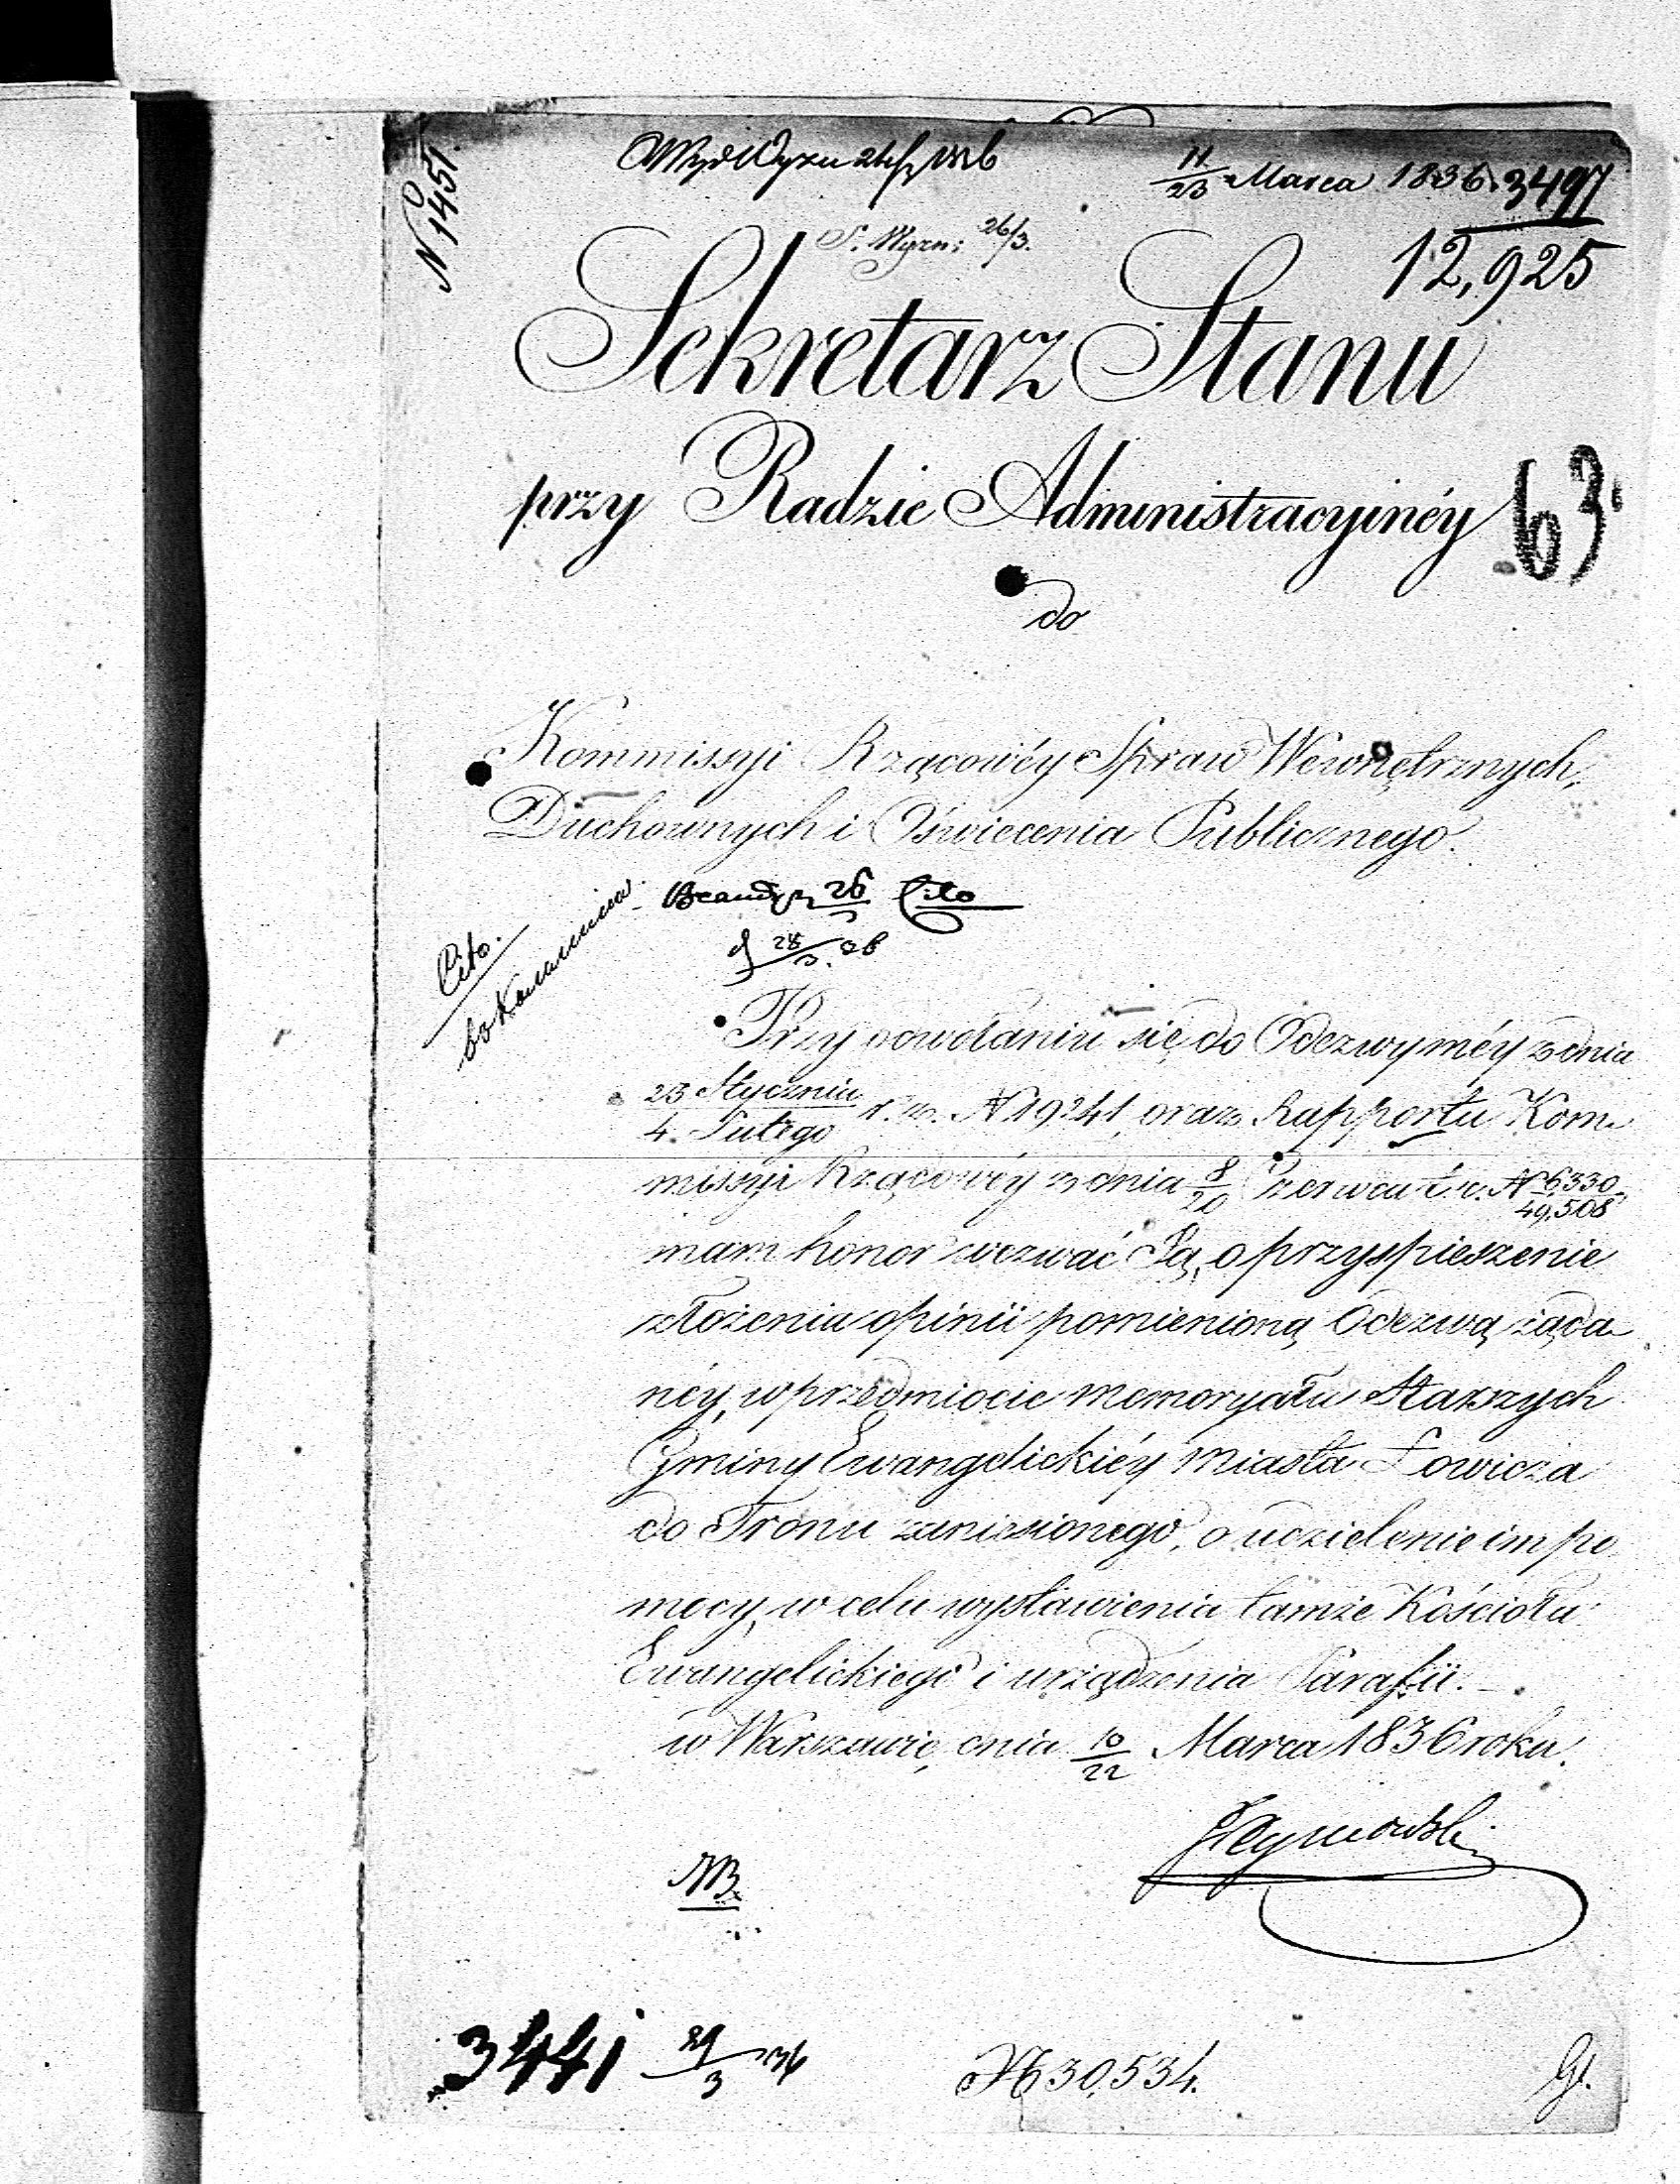 N 1451.
11/23 Marca 1836. 3497
12,925
S. Wyzn: 26/3.
Sekretarz Stanu
przy Radzie Administracyinéy
63.
do
Kommissyi Rządowéy Spraw Wewnętrznych,
Duchownych i Oświecenia Publicznego.
26 Cito
28/3. 36
Cito.
Przy odwołaniu się do Odezwy méy z dnia
23 Stycznia / 4. Lutego r. z. N 19241, oraz Rapportu Kom-
missyi Rządowéy z dnia 8/20 Czerwca t. r. N 6330/49,508
mam honor wezwać Ją, o przyspieszenie
złożenia opinii pomienioną Odezwą żąda-
néy, w przedmiocie memoryału Starszych
Gminy Ewangelickiéy Miasta Łowicza
do Tronu zaniesionego, o udzielenie im po-
mocy, w celu wystawienia tamże Kościoła
Ewangelickiego i urządzenia Parafii.
w Warszawie, dnia 10/22 Marca 1836 roku.
NB.
3441 29/3 36
N 30,534.
Gł.